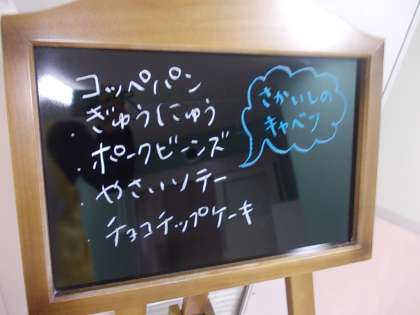 コッペパン
・ぎゅうにゅう
・ポークビーンズ
・やさいソテー
・チョコチップケーキ
さかいしの
キャベツ